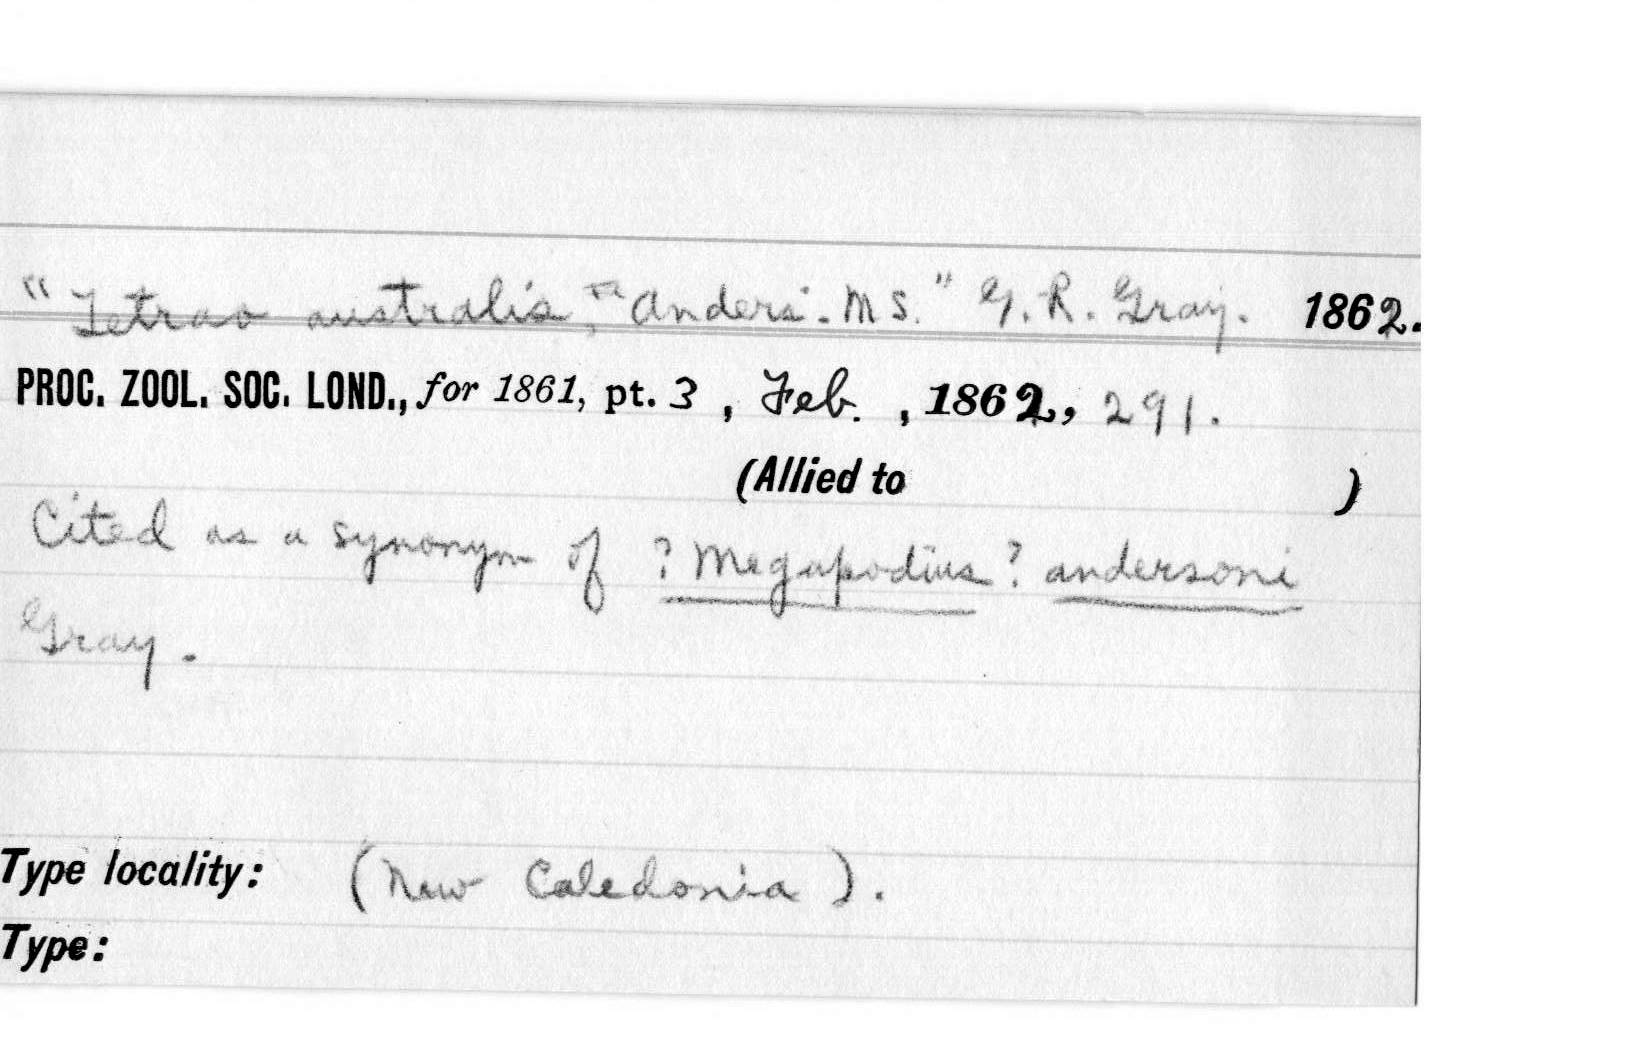 "Tetrao australis, Anders. MS." G. R. Gray. 1862.
PROC. ZOOL. SOC. LOND., for 1861, pt. 3, Feb., 1862, 291.
(Allied to )
Cited as a synonym of ? Megapodius ? andersoni
Gray.
Type locality: (New Caledonia).
Type: